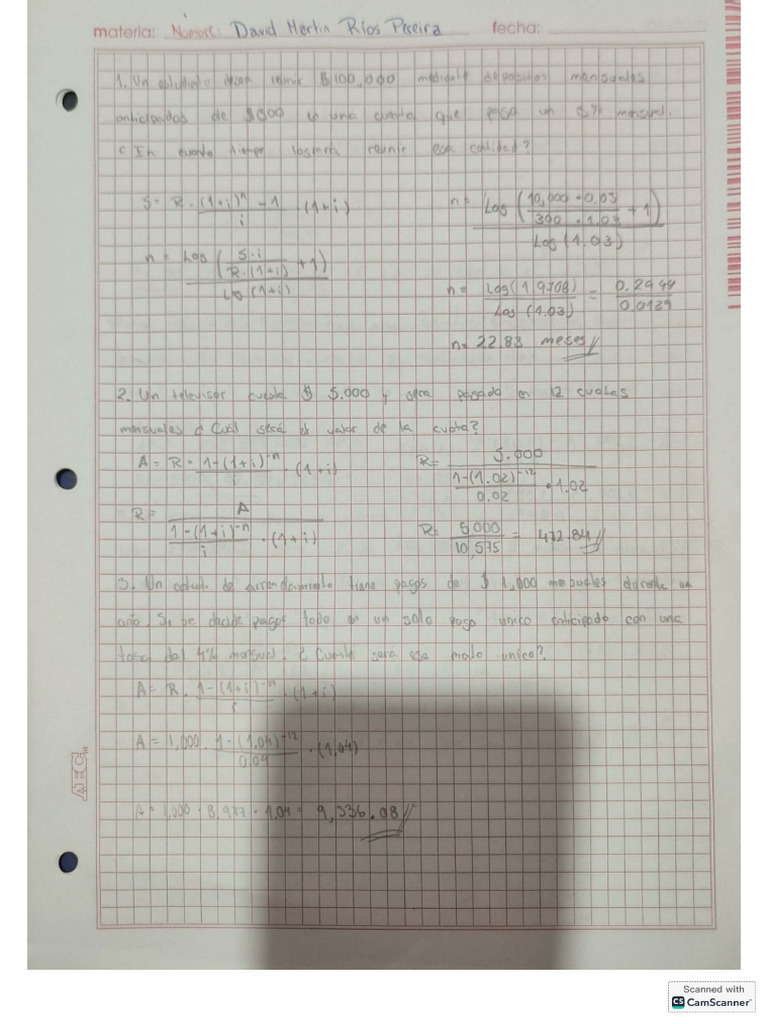 materia: Nombre: David Martin Ríos Pereira fecha:
1. Un estudiante desea reunir $100,000 mediante depositos mensuales
anticipados de $ en una cuenta que paga un mensual.
¿ En cuanto tiempo lograra reunir esa cantidad?
S = R . (1+i)^n - 1 / i . (1+i)
n = Log ( S.i / R.(1+i) + 1 ) / Log (1+i)
n = Log ( 10,000 . 0.03 / 300 . 1.03 + 1 ) / Log (1.03)
n = Log (1,9708) / Log (1.03) = 0.2944 / 0.0129
n= 22.83 meses //
2. Un televisor cuesta $ 5.000 y sera pagado en 12 cuotas
mensuales ¿ Cuál será el valor de la cuota?
A = R . 1-(1+i)^-n / i . (1+i)
R = A / 1-(1+i)^-n / i . (1+i)
R= 5.000 / 1-(1.02)^-12 / 0.02 . 1.02
R= 5,000 / 10,575 = 472.84 //
3. Un de arrendamiento tiene pagos de $ 1,000 mensuales durante un
año. Si se decide pagar todo en un solo pago unico anticipado con una
tasa del 4% mensual. ¿ Cuanto sera ese unico?
A = R . 1-(1+i)^-n / i . (1+i)
A = 1,000 . 1-(1.04)^-12 / 0.04 . (1,04)
A = 1,000 . 8,977 . 1.04 = 9,336.08 //
Scanned with
CS CamScanner